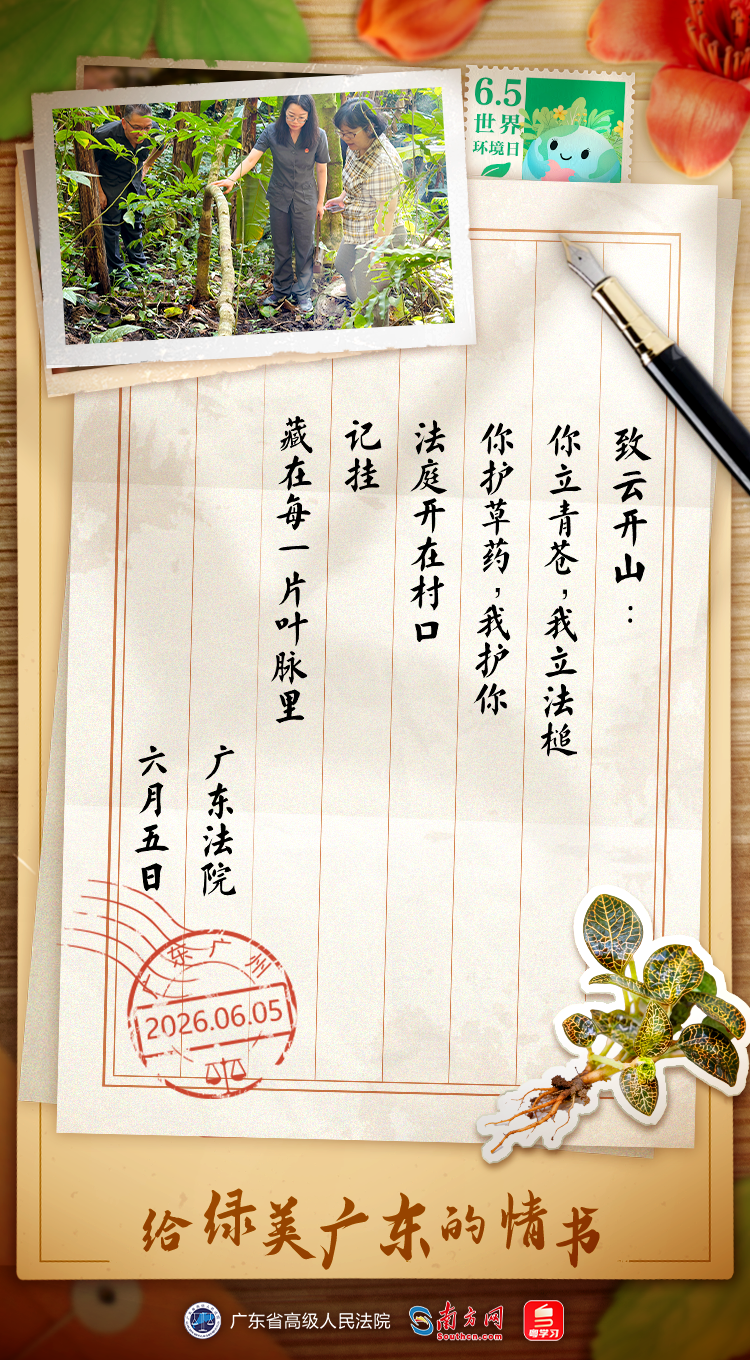 6.5
世界
环境日
致云开山：
你立青苍，我立法槌
你护草药，我护你
法庭开在村口
记挂
藏在每一片叶脉里
广东法院
六月五日
广东广州
2026.06.05
给绿美广东的情书
广东省高级人民法院
南方网
Southcn.com
粤学习